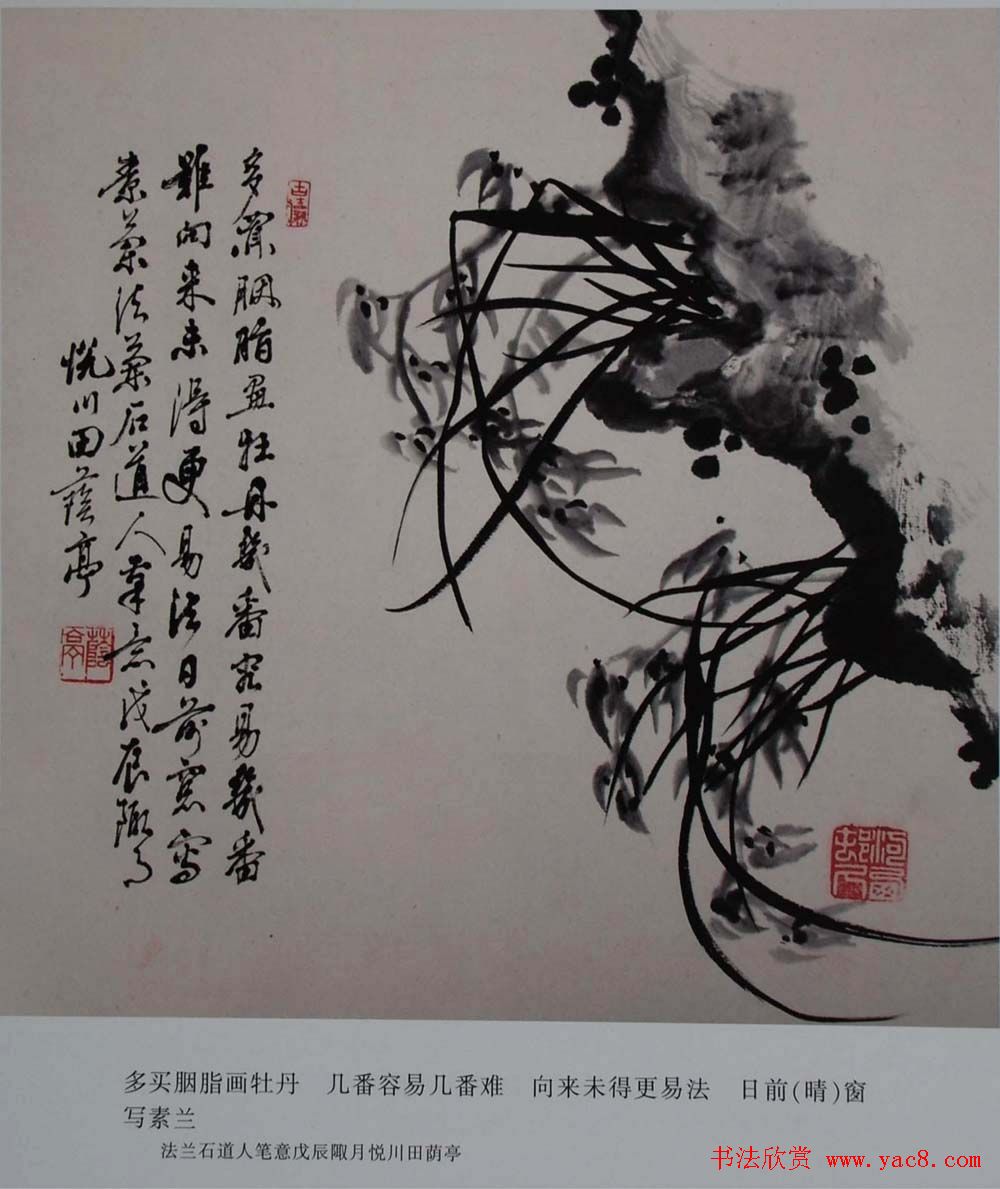 多買胭脂畫牡丹幾番容易幾番
難向来未得更易法日前窓寫
素蘭法蘭石道人筆意戊辰陬月
悦川田蔭亭
蔭亭
多买胭脂画牡丹 几番容易几番难 向来未得更易法 日前(晴)窗
写素兰
法兰石道人笔意戊辰陬月悦川田荫亭
书法欣赏 www.yac8.com